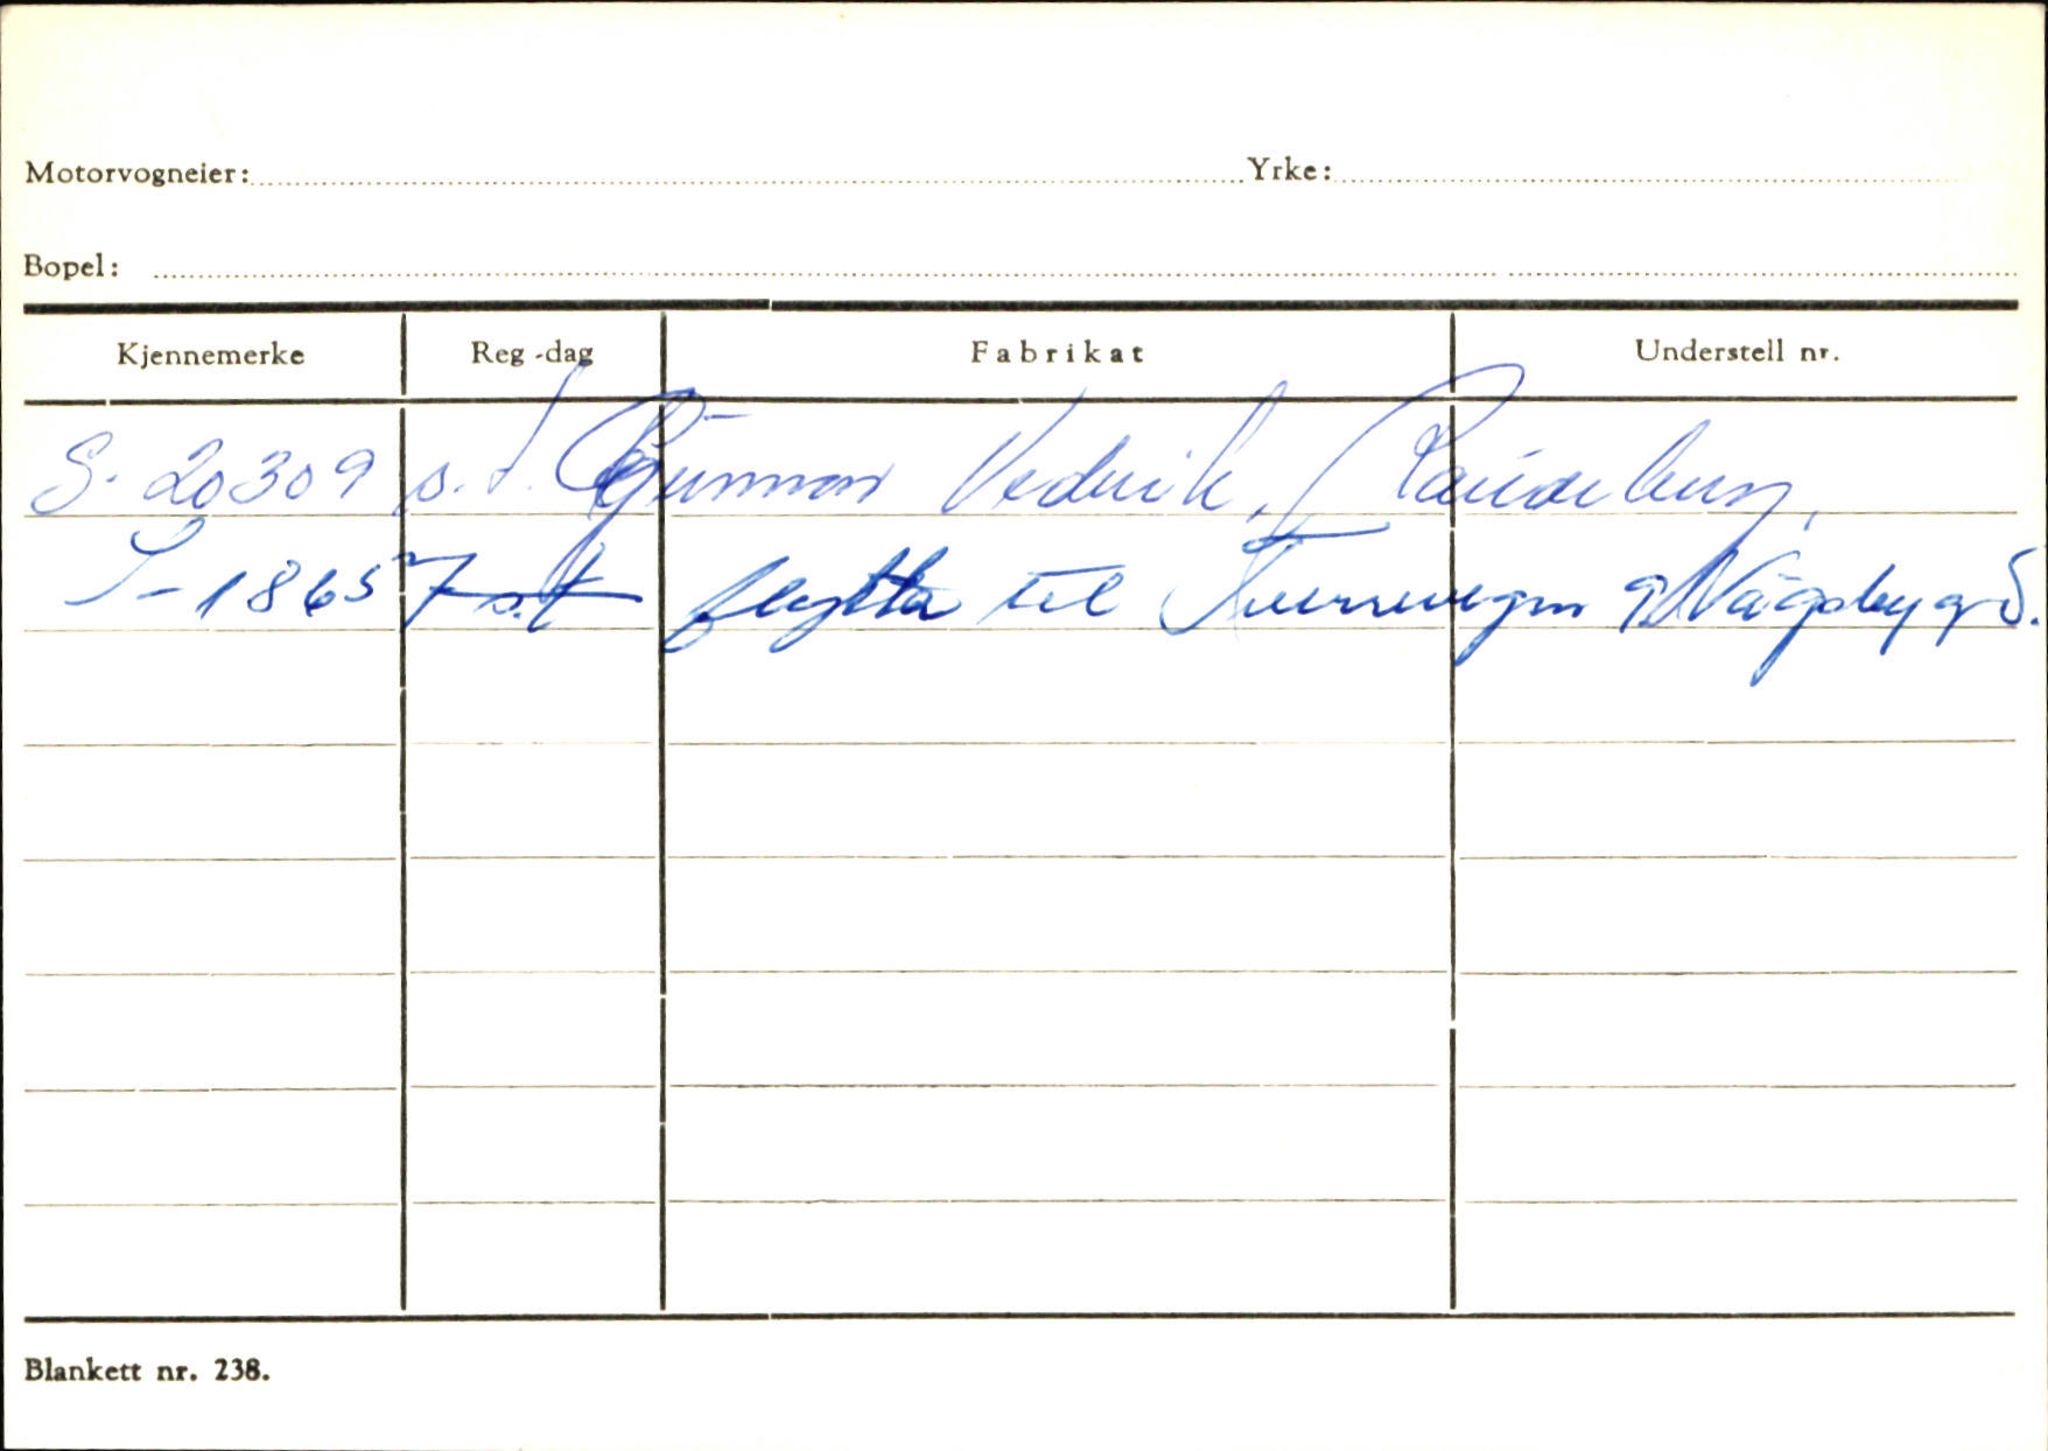 Motorvogneier: Yrke:
Bopel:
Kjennemerke Reg-dag Fabrikat Understell nr.
S-20309 s.d. Gunnar Vedvik, Raudeberg,
S-18657 s.d flytta til Tverrvegen 9, Vågsbygd.
Blankett nr. 238.